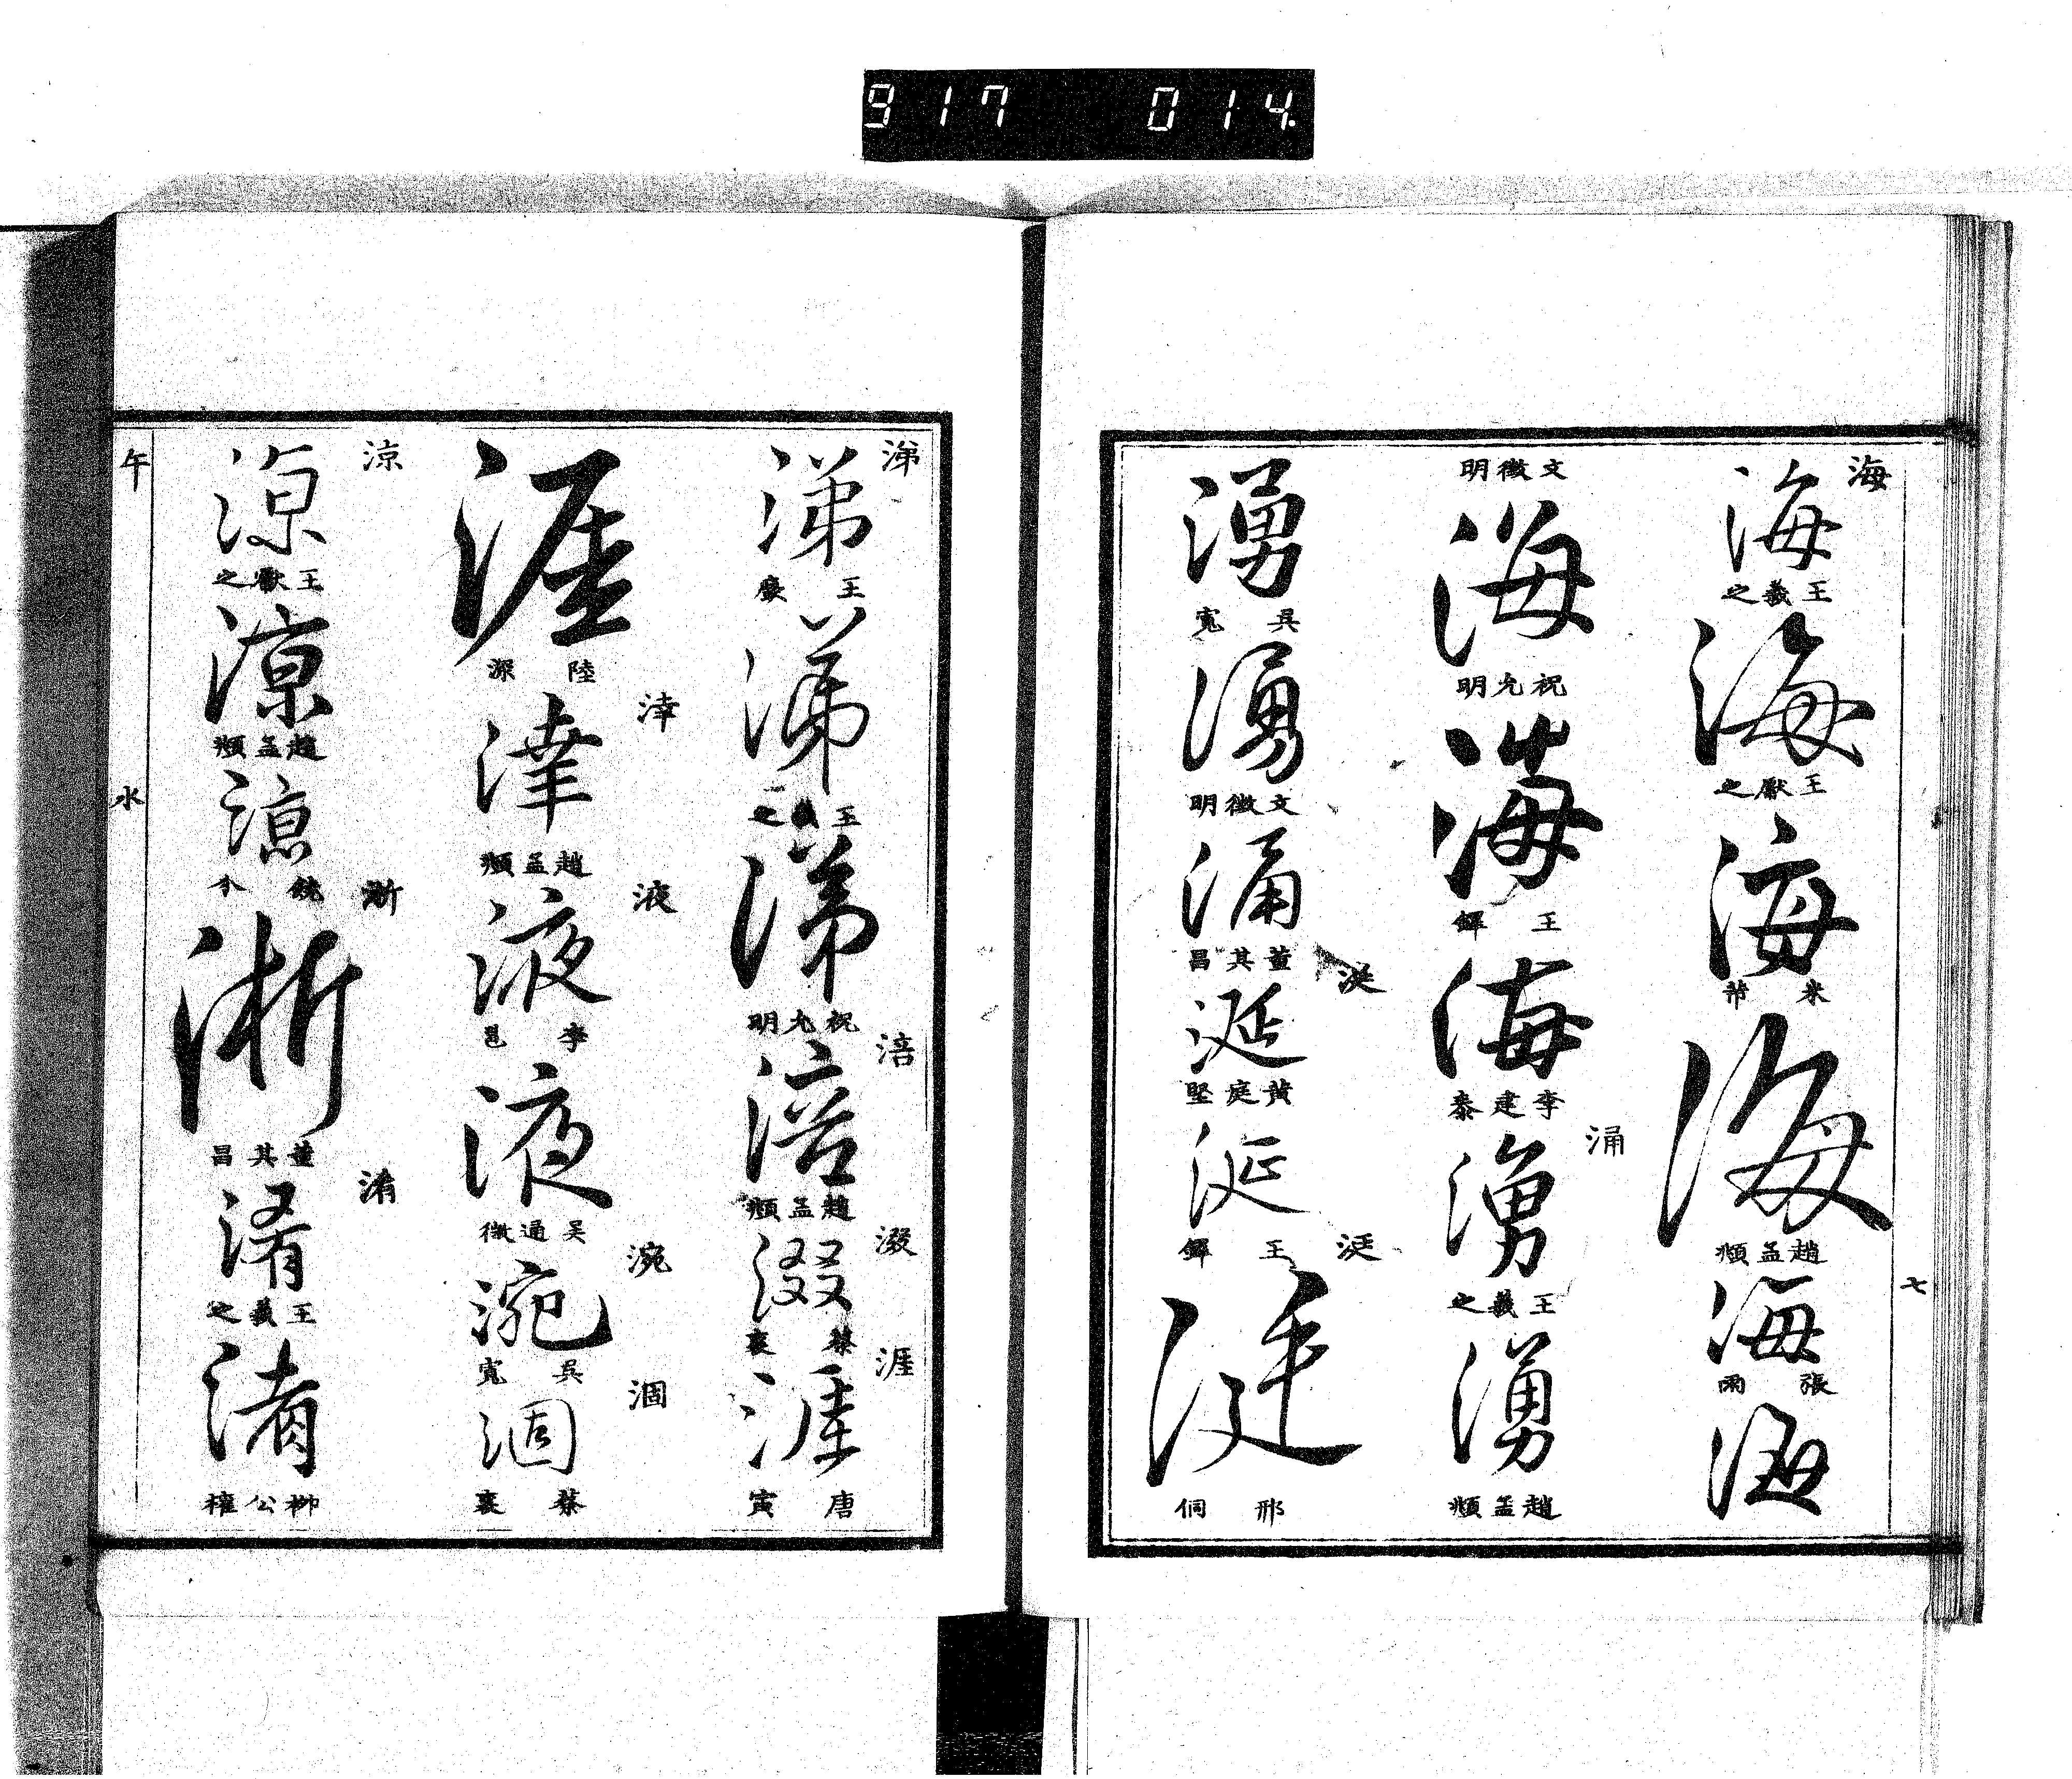 917 014.
七
海
海
王羲之
海
王獻之
海
米芾
海
趙孟頫
海
張雨
海
文徵明
海
祝允明
海
王鐸
海
李建泰
涌
湧
王羲之
湧
趙孟頫
湧
吳寬
湧
文徵明
涌
董其昌
涎
涎
黃庭堅
涎
王鐸
涏
涏
邢侗
涕
涕
王廙
涕
王羲之
涕
祝允明
涪
涪
趙孟頫
涰
涰
蔡襄
涯
涯
唐寅
涯
陸深
涬
涬
趙孟頫
液
液
李邕
液
吳通微
涴
涴
吳寬
涸
涸
蔡襄
涼
涼
王獻之
涼
趙孟頫
涼
饒介
淅
淅
董其昌
淆
淆
王羲之
淆
柳公權
午
水